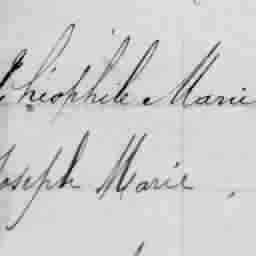 Théophile Marie
Joseph Marie,